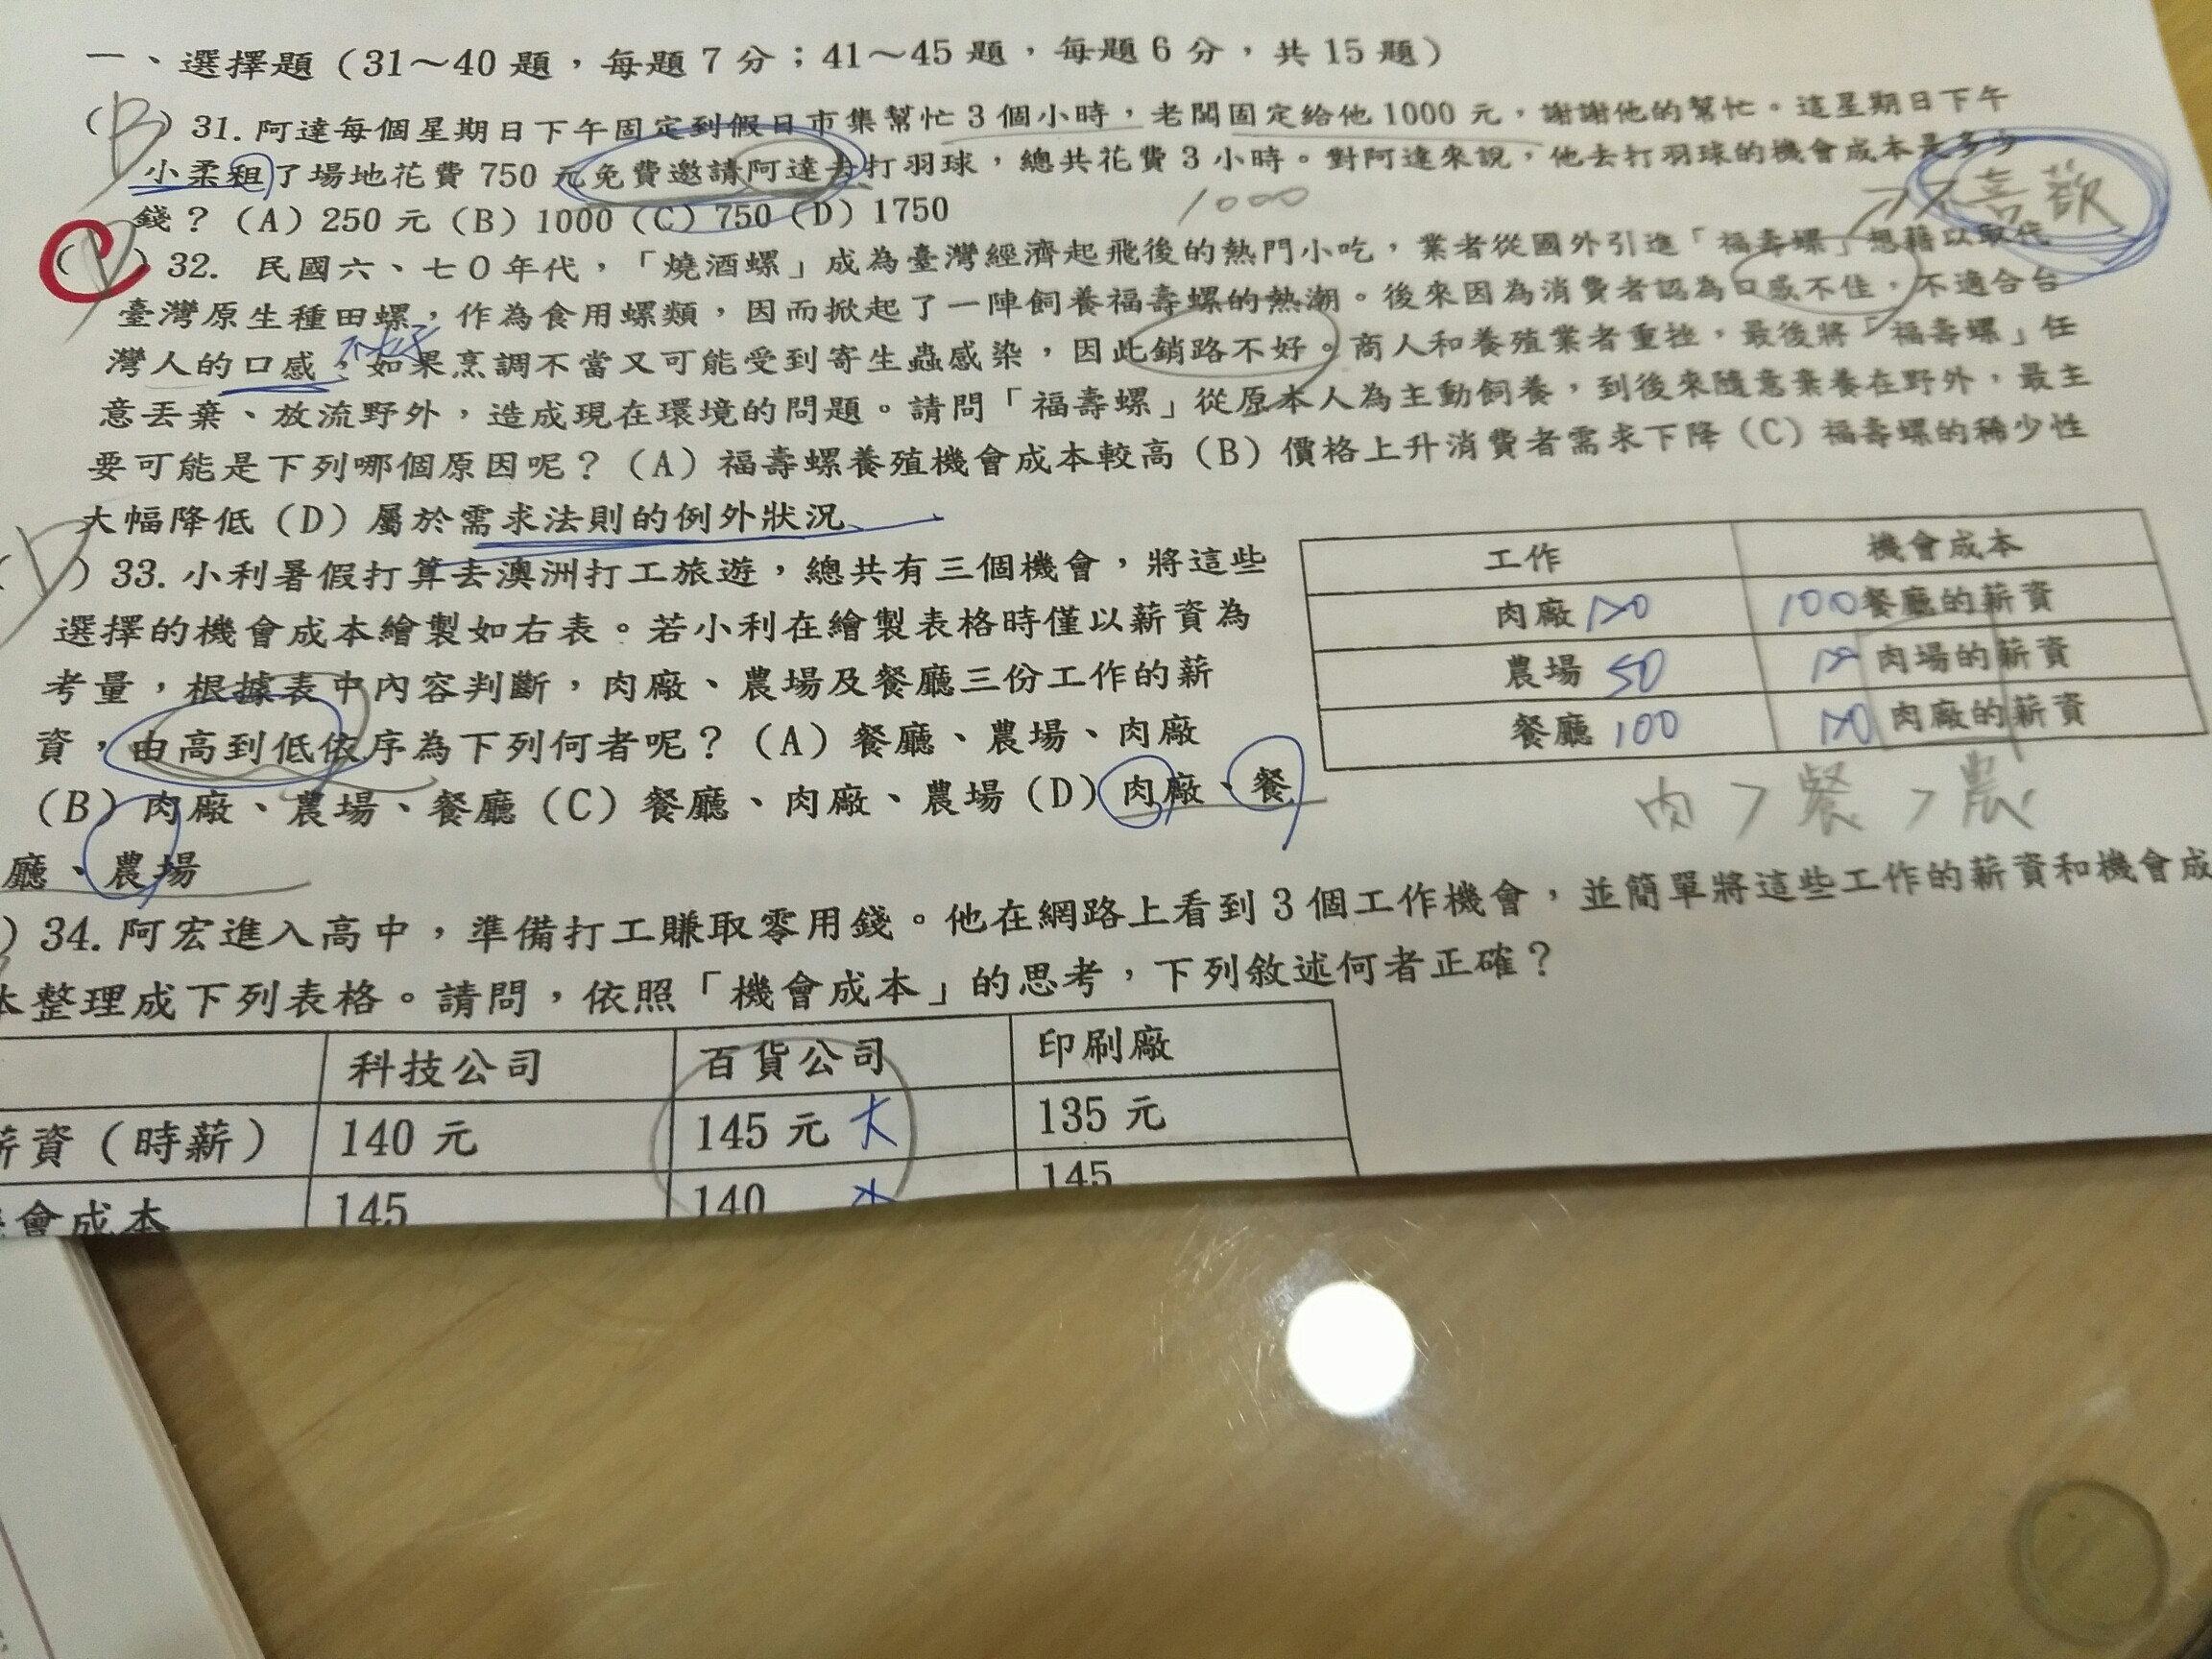 一、選擇題（31～40 題，每題 7 分；41～45 題，每題 6 分，共 15 題）
（B）31. 阿達每個星期日下午固定到假日市集幫忙 3 個小時，老闆固定給他 1000 元，謝謝他的幫忙。這星期日下午
小柔租了場地花費 750 元免費邀請阿達去打羽球，總共花費 3 小時。對阿達來說，他去打羽球的機會成本是多少
錢？（A）250 元（B）1000（C）750（D）1750
1000
不喜歡
C
（D）32. 民國六、七０年代，「燒酒螺」成為臺灣經濟起飛後的熱門小吃，業者從國外引進「福壽螺」想藉以取代
臺灣原生種田螺，作為食用螺類，因而掀起了一陣飼養福壽螺的熱潮。後來因為消費者認為口感不佳，不適合台
不好
灣人的口感，如果烹調不當又可能受到寄生蟲感染，因此銷路不好。商人和養殖業者重挫，最後將「福壽螺」任
意丟棄、放流野外，造成現在環境的問題。請問「福壽螺」從原本人為主動飼養，到後來隨意棄養在野外，最主
要可能是下列哪個原因呢？（A）福壽螺養殖機會成本較高（B）價格上升消費者需求下降（C）福壽螺的稀少性
大幅降低（D）屬於需求法則的例外狀況
（D）33. 小利暑假打算去澳洲打工旅遊，總共有三個機會，將這些
選擇的機會成本繪製如右表。若小利在繪製表格時僅以薪資為
考量，根據表中內容判斷，肉廠、農場及餐廳三份工作的薪
資，由高到低依序為下列何者呢？（A）餐廳、農場、肉廠
（B）肉廠、農場、餐廳（C）餐廳、肉廠、農場（D）肉廠、餐
廳、農場
工作 機會成本
肉廠 120 100 餐廳的薪資
農場 50 120 肉場的薪資
餐廳 100 120 肉廠的薪資
肉＞餐＞農
）34. 阿宏進入高中，準備打工賺取零用錢。他在網路上看到 3 個工作機會，並簡單將這些工作的薪資和機會成
本整理成下列表格。請問，依照「機會成本」的思考，下列敘述何者正確？
科技公司 百貨公司 印刷廠
薪資（時薪） 140 元 145 元 大 135 元
機會成本 145 140 小 145